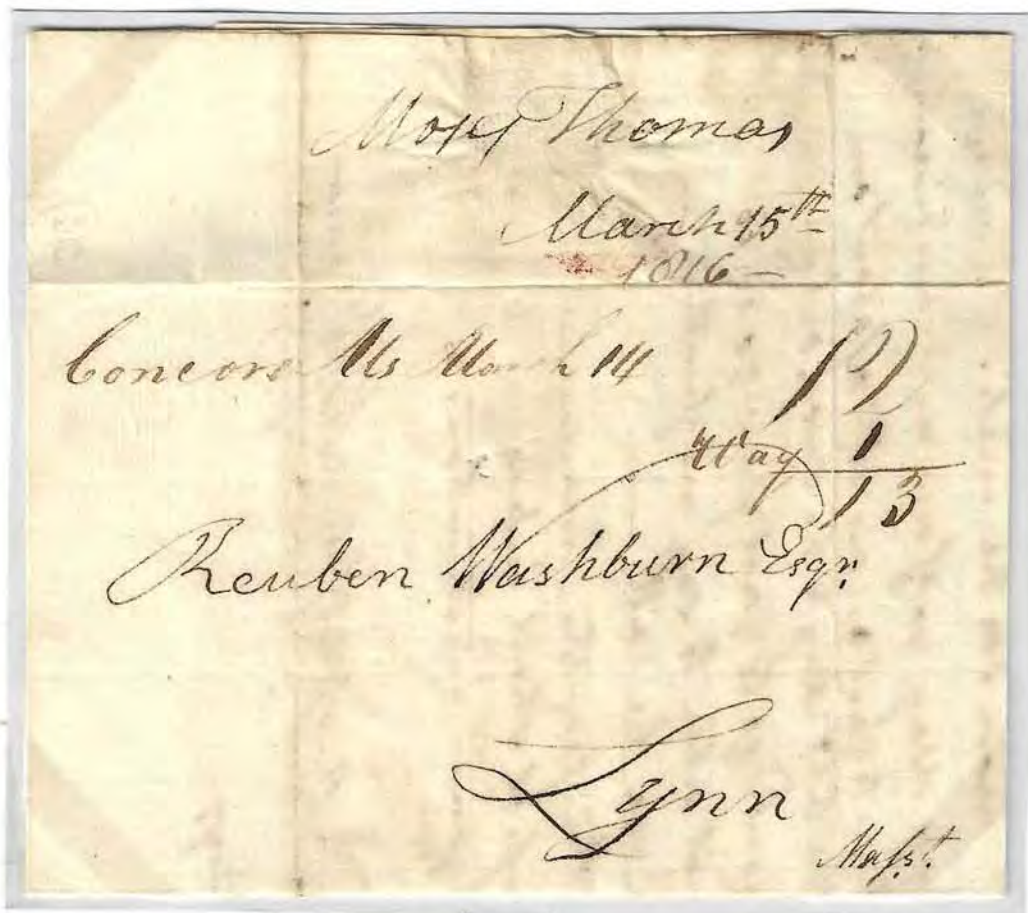 Moses Thomas
March 15th
1816 —
Concord Ms March 14 12
Way 1
13
Reuben Washburn Esqr.
Lynn
Masst.